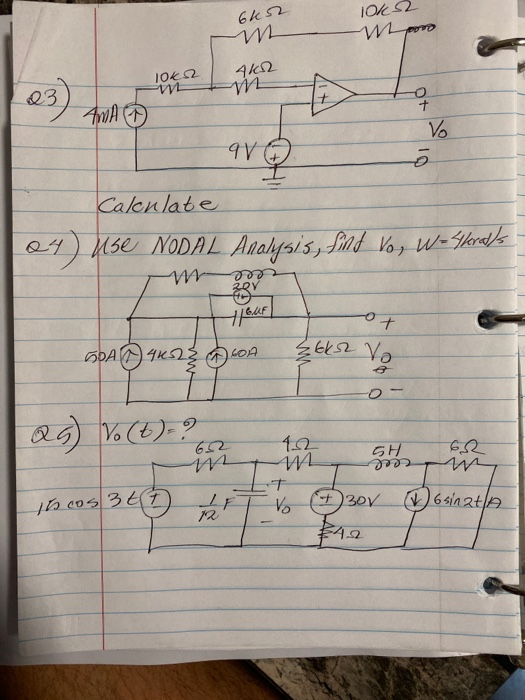 6kΩ 10kΩ
10kΩ 4kΩ
Q3)
4mA
- +
+
Vo
-
9V
- +
Calculate
Q4) Use NODAL Analysis, find Vo, W=4krad/s
20V
6MF
+
50A 4kΩ 60A 6kΩ Vo
-
Q5) Vo(t)=?
6Ω 4Ω 5H 6Ω
cos 3t ± 1/12 F + Vo - + 30V 6sin2t A
4Ω